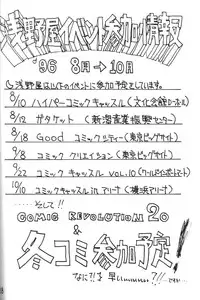 浅野屋イベント参加情報
'96 8月→10月
◎浅野屋は以下のイベントに参加予定としています。
8/10 ハイパーコミックキャッスル(文化会館
8/12 ガタケット(新潟産業振興センター)
8/18 Good コミックシティー(東京ビッグサイト)
9/8 コミック クリエイション(東京ビッグサイト)
9/22 コミックキャッスル VOL.10(ワールドインポートマート)
10/10 コミックキャッスル in アリーナ(横浜アリーナ)
そして!
COMIC REVOLUTION 20
&
冬コミ参加予定!
なに?!早い